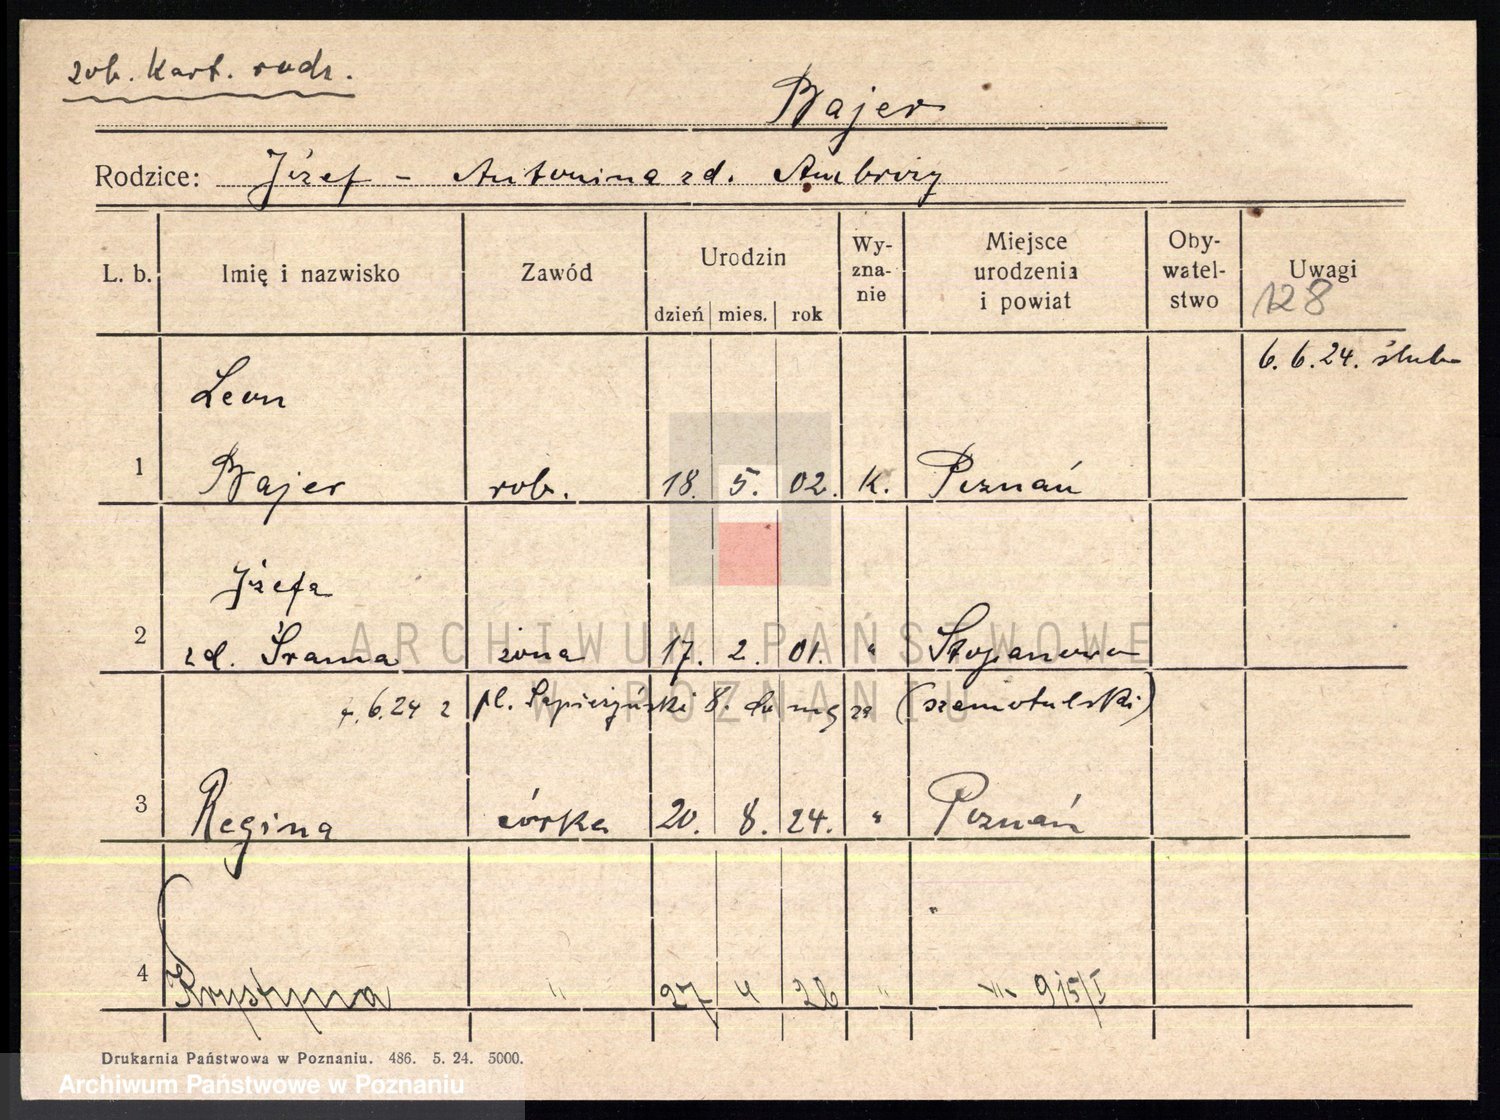 zob. kart. rodz.
Bajer
Rodzice: Józef - Antonina zd. Ambroży
L. b. Imię i nazwisko Zawód Urodzin dzień mies. rok Wy-zna-nie Miejsce urodzenia i powiat Oby-watel-stwo Uwagi
128
6.6.24. ślub
Leon
1 Bajer rob. 18. 5. 02. K. Poznań
Józefa
2 zd. Śrama żona 17. 2. 01. " Stopanowo
.6.24 z pl. Sapieżyński 8. do męża (szamotulski)
3 Regina córka 20. 8. 24. " Poznań
4 Krystyna " 27 4 26 " -"- 915/I
Drukarnia Państwowa w Poznaniu. 486. 5. 24. 5000.
ARCHIWUM PAŃSTWOWE
W POZNANIU
Archiwum Państwowe w Poznaniu